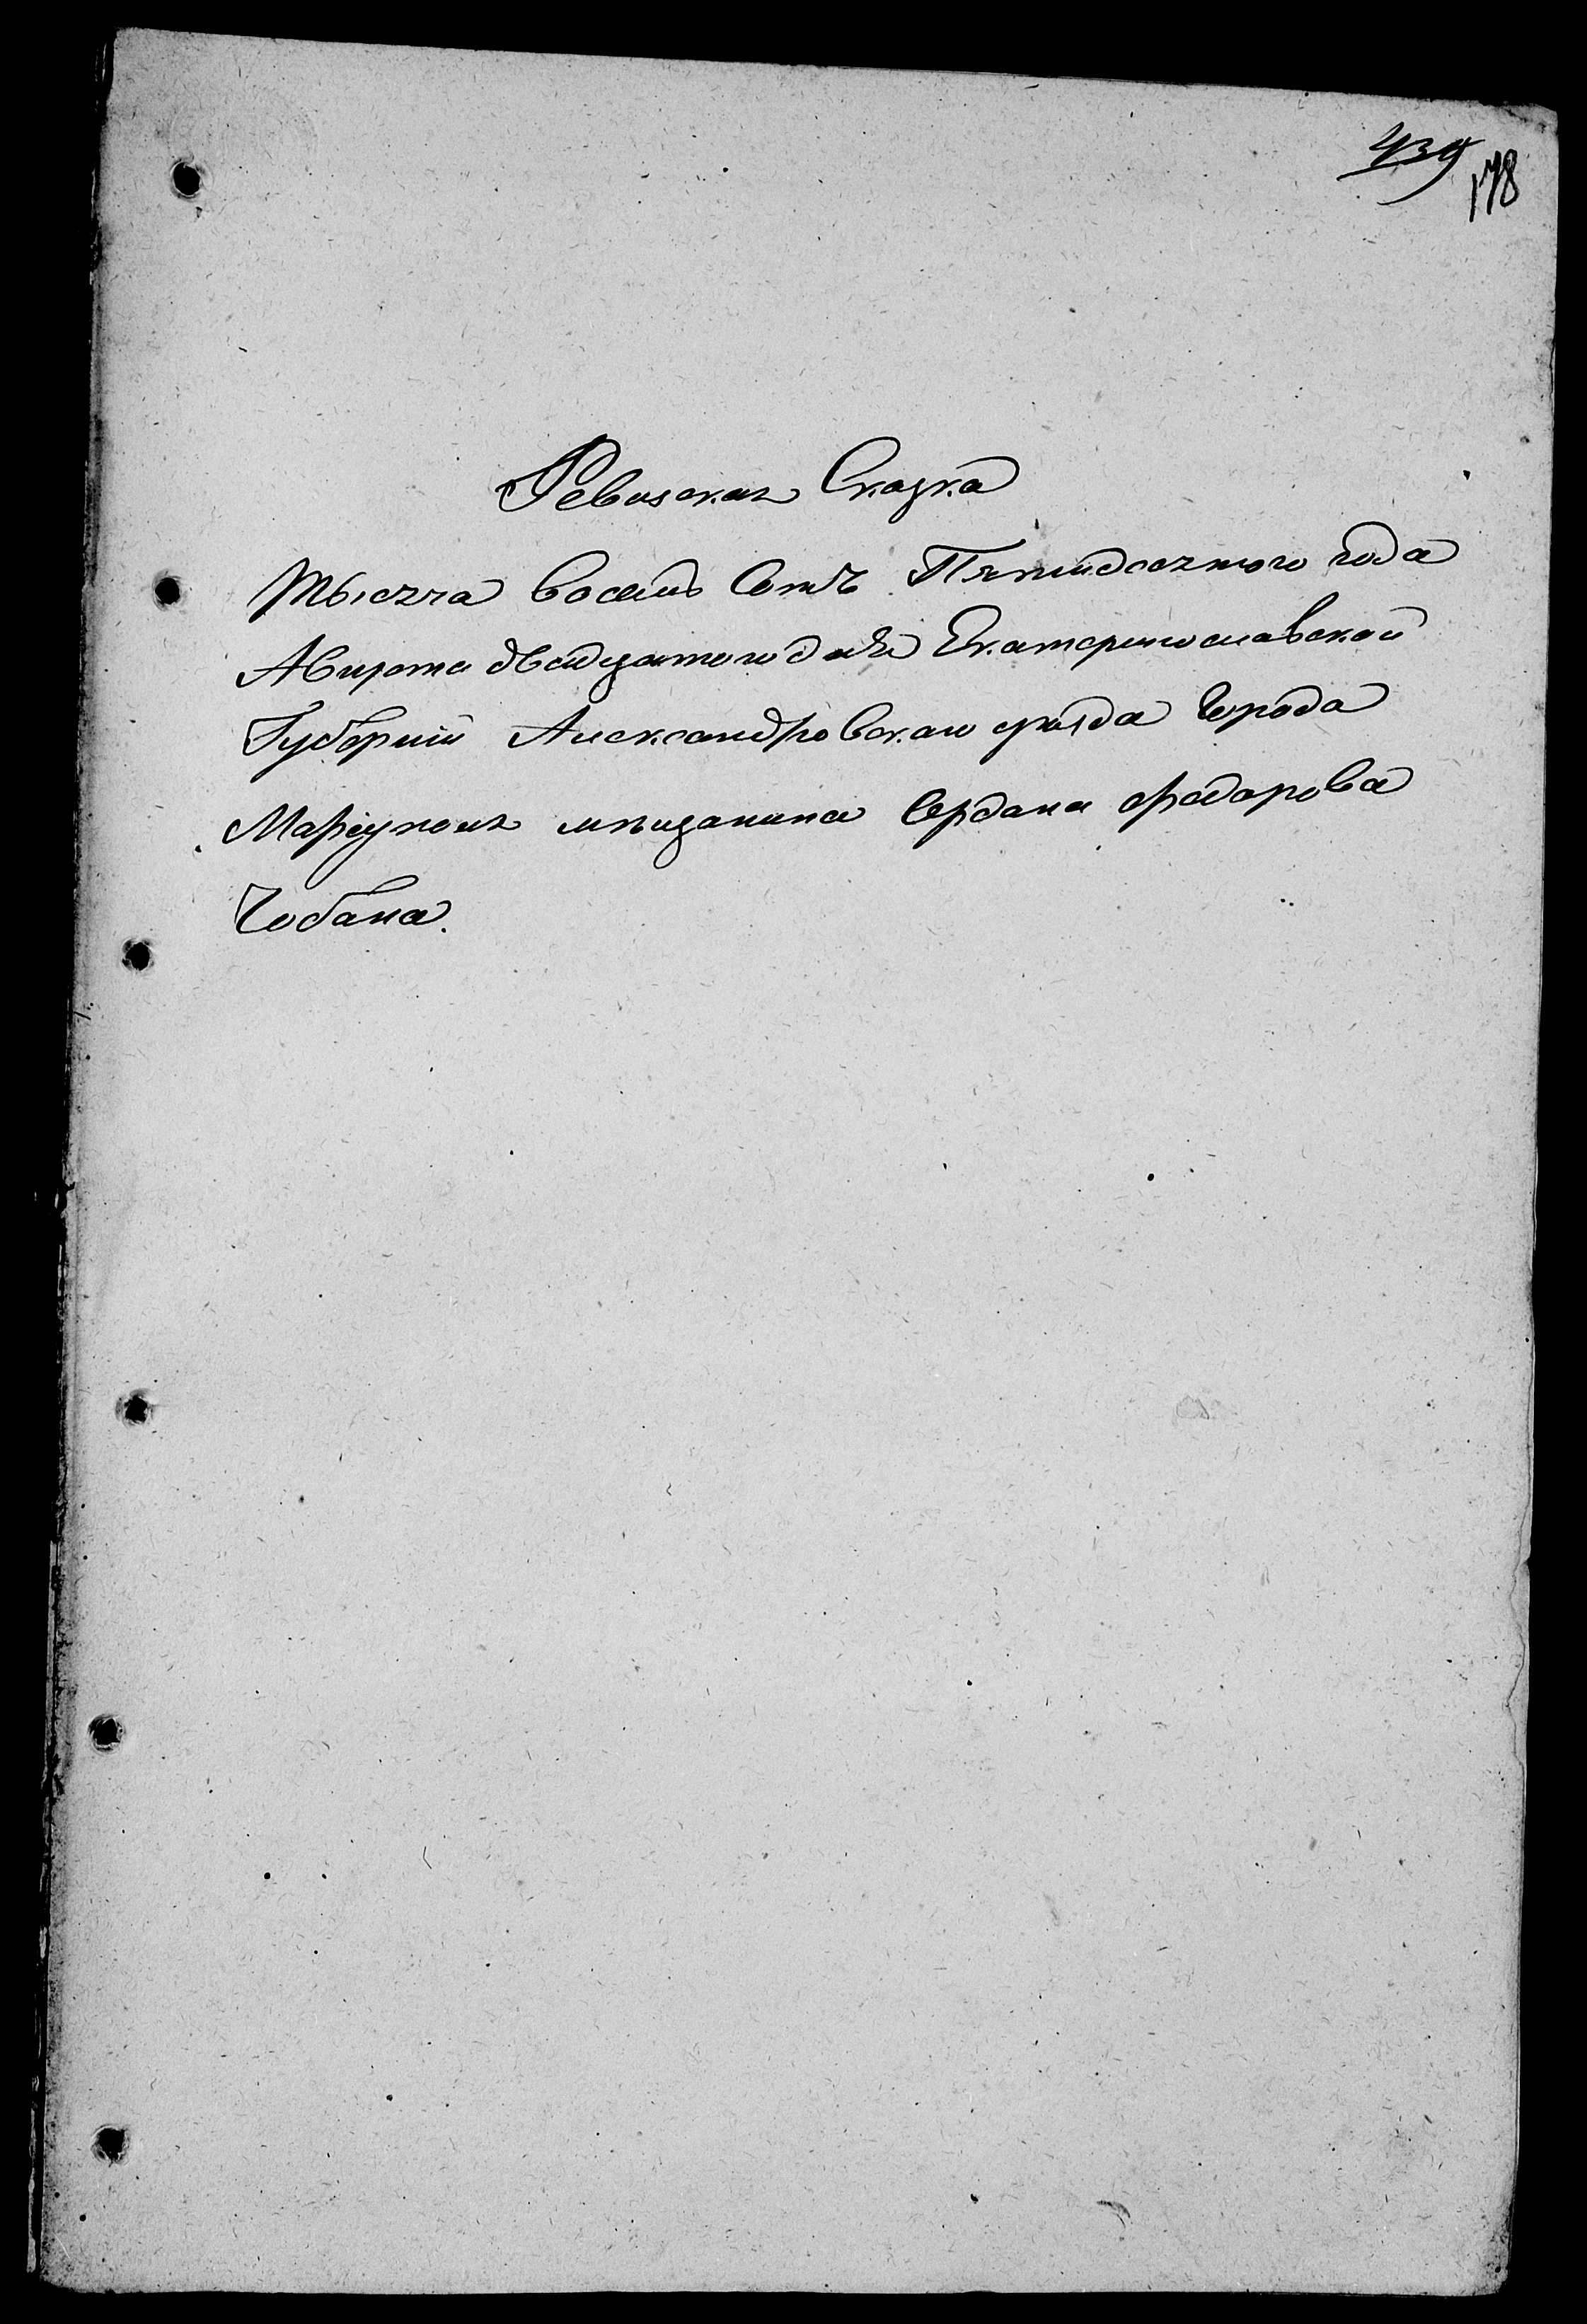 439
178
Ревизская Сказка
Тысяча восемь Сотъ Пятидесятого года
Августа двадцатого дня Екатеринославской
Губернии Александровскаго уезда Города
Мариуполя мещанина Юрдана Федорова
Чобана.